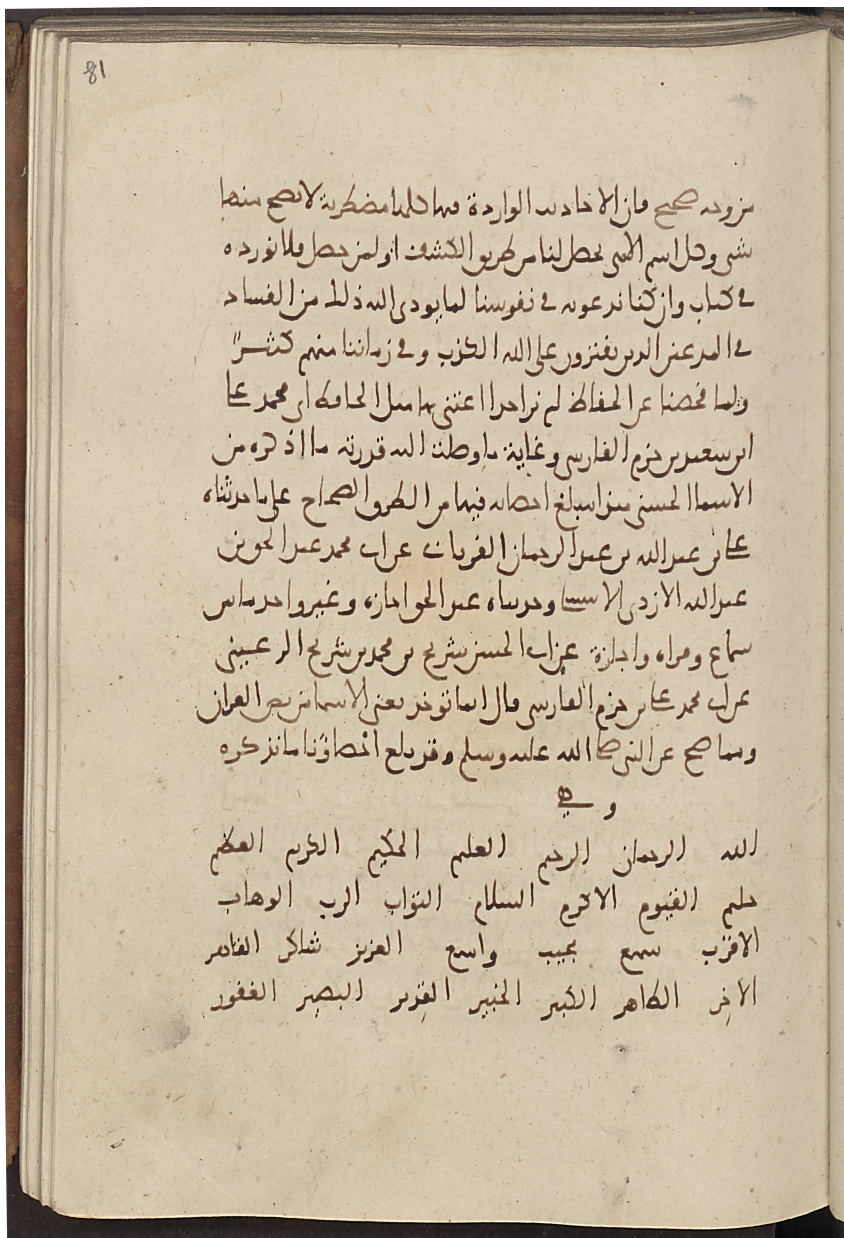 81
من وجه صحيح فان الاحاديث الواردة فيها كلها مضطربة لا يصح منها
شي وكل اسم الاهي يحصل لنا من طريق الكشف او لمن حصل فلا نورده
في كتاب وان كنا ندعو به في نفوسنا لما يودي اليه ذلك من الفساد
في المدعين الذين يفترون على الله الكذب وفي زماننا منهم كثير
ولما فحصنا عن الحفاظ لم نر احدا اعتنى بها مثل الحافظ ابي محمد علي
ابن سعيد بن حزم الفارسي وغاية ما وصلت اليه قدرته ما اذكره من
الاسما الحسنى مبلغ احصائه فيها من الطرق الصحاح على ما حدثناه
علي بن عبد الله بن عبد الرحمان الفرياني عن ابي محمد عبد الحق بن
عبد الله الازدي الاشبيلي وحدثناه عبد الحق اجازة وغير واحد ما بين
سماع وقراه واجازة عن ابي الحسن شريح بن محمد بن شريح الرعيني
عن ابي محمد علي بن حزم الفارسي قال انما توخذ يعني الاسما من نص القران
ومما صح عن النبي صلى الله عليه وسلم وقد بلغ احصاؤنا ما نذكره
وهي
الله الرحمان الرحيم العليم الحكيم الكريم العظيم
حليم القيوم الاكرم السلام التواب الرب الوهاب
الاقرب سميع مجيب واسع العزيز شاكر القاهر
الاخر الظاهر الكبير الخبير القدير البصير الغفور